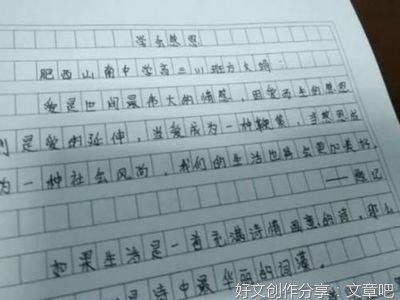 学会感恩
肥西山南中学高 班方大
爱是世间最伟大的情感,因爱而生的感恩
则是爱的延伸,当爱成为一种鞭策,当感恩成
为一种社会风尚,我们的生活也将会更加美好。
——题记
如果生活是一首充满诗情画意的诗,那么
是诗中最华丽的词藻。
好文创作分享:文章吧